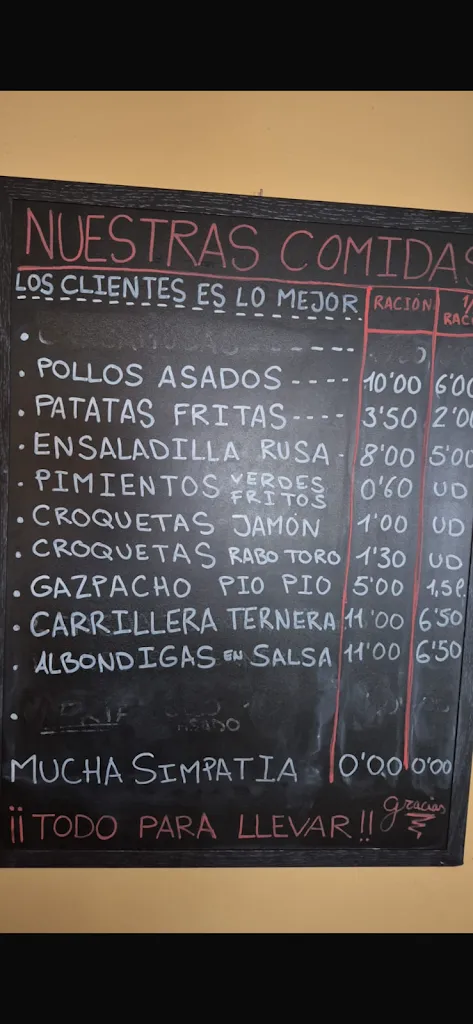 NUESTRAS COMIDAS
LOS CLIENTES ES LO MEJOR RACIÓN 1/ RAC
. POLLOS ASADOS ---- 10'00 6'00
. PATATAS FRITAS ---- 3'50 2'00
. ENSALADILLA RUSA - 8'00 5'00
. PIMIENTOS VERDES FRITOS 0'60 UD
. CROQUETAS JAMÓN 1'00 UD
. CROQUETAS RABO TORO 1'30 UD
. GAZPACHO PIO PIO 5'00 1,5l.
. CARRILLERA TERNERA 11'00 6'50
. ALBONDIGAS EN SALSA 11'00 6'50
ASADO
MUCHA SIMPATIA - 0'00 0'00
¡¡TODO PARA LLEVAR!! gracias